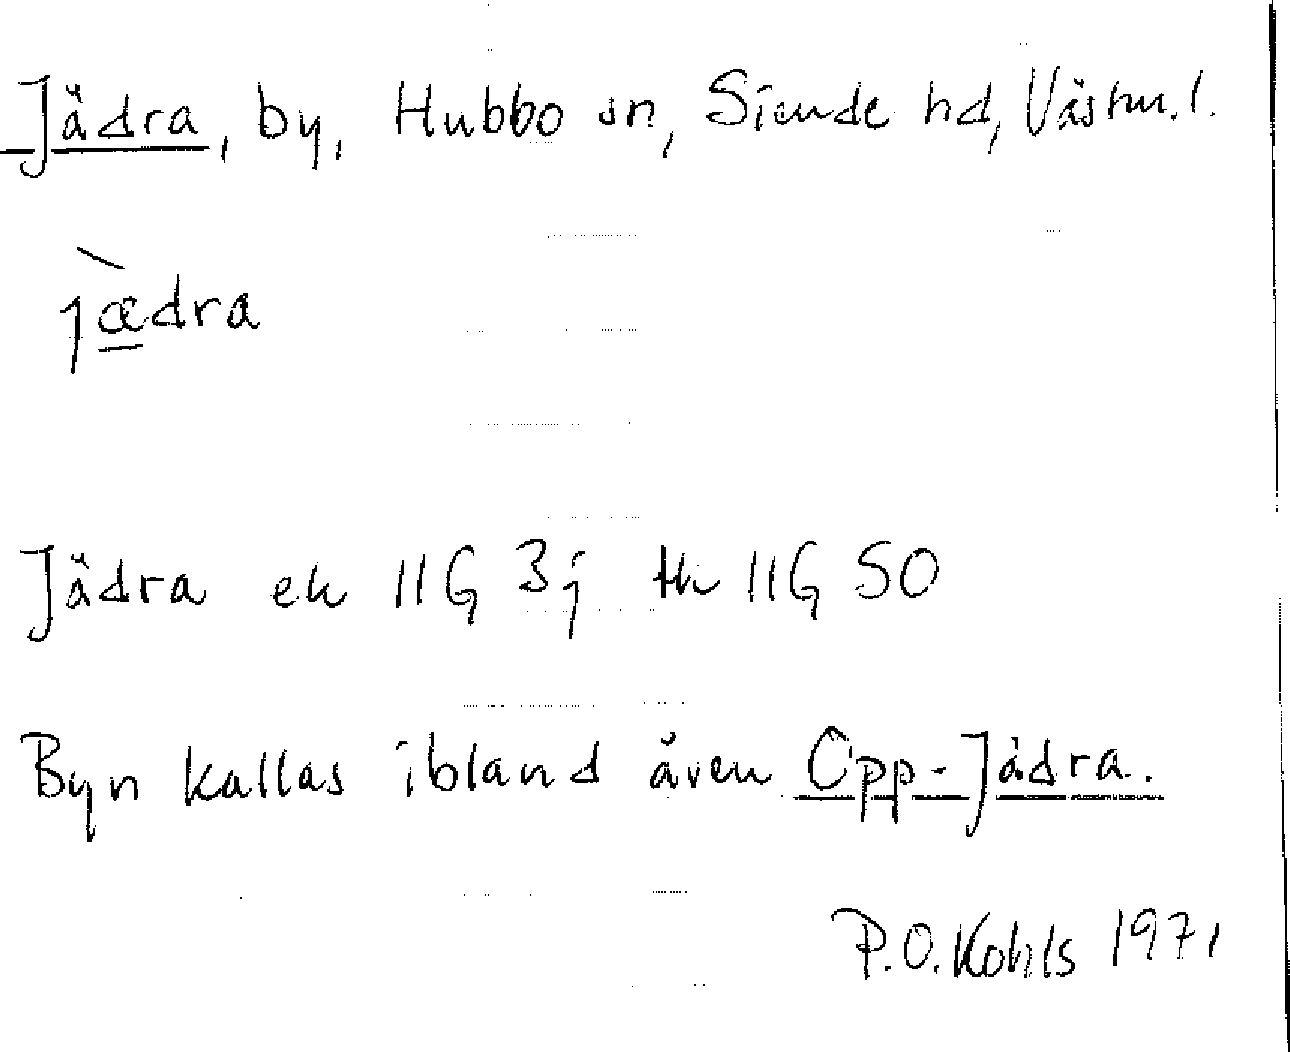 Jädra, by, Hubbo sn, Siende hd, Västm.l.
jæ̀dra
Jädra ek 11G 3j tk 11G SO
Byn kallas ibland även Opp-Jädra.
P.O. Kohls 1971